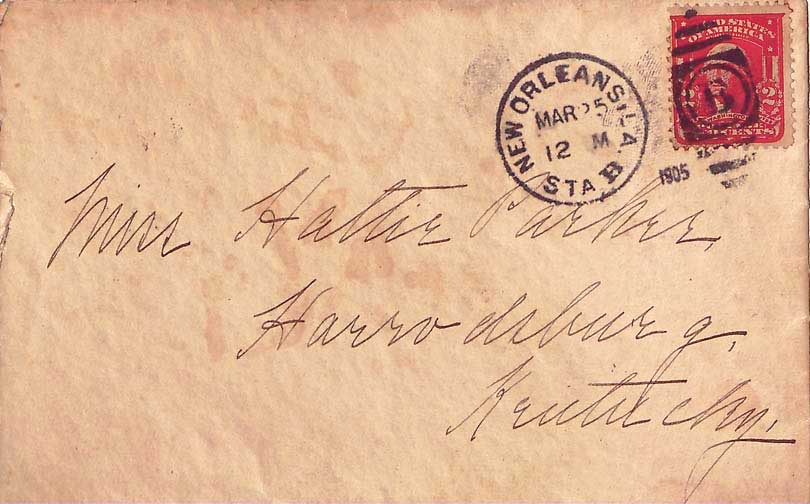 UNITED STATES
OF AMERICA
2 2
WASHINGTON
CENTS
NEW ORLEANS, LA.
MAR 25
12 M
STA B
1905
B
Miss Hattie Parker,
Harrodsburg,
Kentucky.